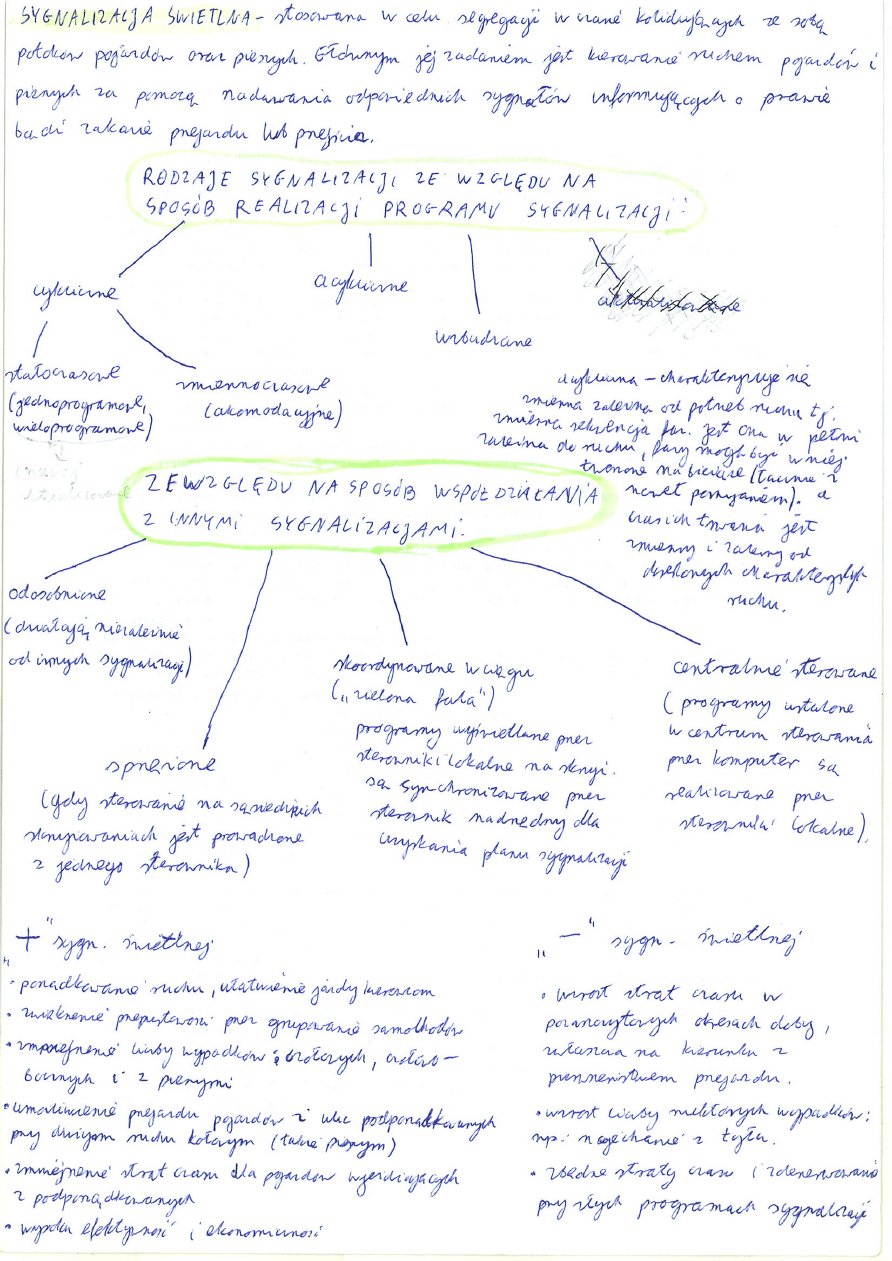 SYGNALIZACJA ŚWIETLNA - stosowana w celu segregacji w czasie kolidujących ze sobą
potoków pojazdów oraz pieszych. Głównym jej zadaniem jest kierowanie ruchem pojazdów i
pieszych za pomocą nadawania odpowiednich sygnałów informujących o prawie
bądź zakazie przejazdu lub przejścia.
RODZAJE SYGNALIZACJI ZE WZGLĘDU NA
SPOSÓB REALIZACJI PROGRAMU SYGNALIZACJI:
cykliczne
acykliczne
wzbudzane
stałoczasowe
(jednoprogramowe,
wieloprogramowe)
zmiennoczasowe
(akomodacyjne)
acykliczna – charakteryzuje się
zmienna zależna od potrzeb ruchu tj.
zmienna sekwencja faz. jest ona w pełni
zależna do ruchu, fazy mogą być w niej
tworzone na bieżąco (łącznie z
nawet pomijaniem). a
czas ich trwania jest
zmienny i zależny od
określonych charakterystyk
ruchu.
ZE WZGLĘDU NA SPOSÓB WSPÓŁDZIAŁANIA
Z INNYMI SYGNALIZACJAMI.
odosobnione
(działają niezależnie
od innych sygnalizacji)
sprzężone
(gdy sterowanie na sąsiednich
skrzyżowaniach jest prowadzone
z jednego sterownika)
skoordynowane w ciągu
("zielona fala")
programy wyświetlane przez
sterowniki lokalne na skrzyż.
są synchronizowane przez
sterownik nadrzędny dla
uzyskania planu sygnalizacji
centralnie sterowane
(programy ustalone
w centrum sterowania
przez komputer są
realizowane przez
sterowniki lokalne).
„+" sygn. świetlnej
• porządkowanie ruchu, ułatwienie jazdy kierowcom
• zwiększenie przepustowości przez grupowanie samochodów
• zmniejszenie liczby wypadków czołowych, czołowo –
bocznych i z pieszymi
• umożliwienie przejazdu pojazdów z ulic podporządkowanych
przy dużym ruchu kołowym (także pieszym)
• zmniejszenie strat czasu dla pojazdów wyjeżdżających
z podporządkowanych
• wysoka efektywność i ekonomiczność
„–" sygn. świetlnej
• wzrost strat czasu w
pozaszczytowych okresach doby,
zwłaszcza na kierunku z
pierwszeństwem przejazdu.
• wzrost liczby niektórych wypadków:
np.: najechanie z tyłu.
• zbędne straty czasu i zdenerwowanie
przy złych programach sygnalizacji